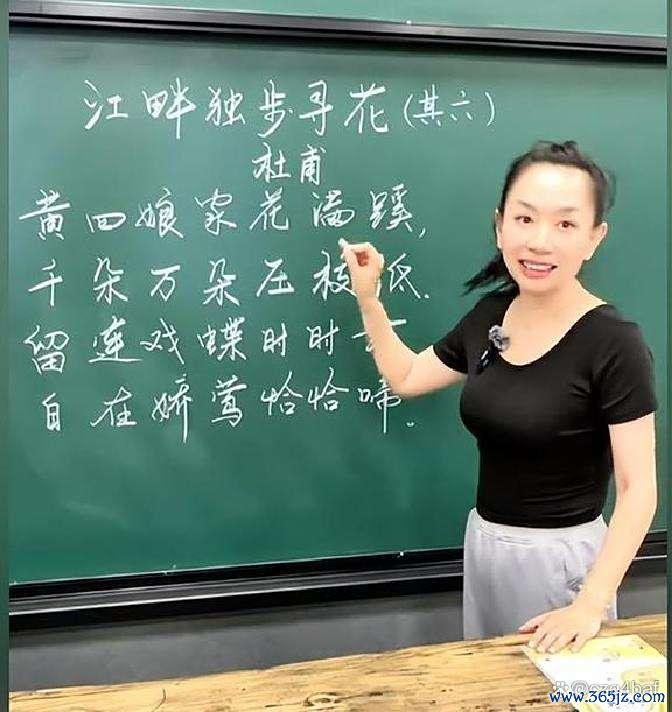 江畔独步寻花(其六)
杜甫
黄四娘家花满蹊,
千朵万朵压枝低.
留连戏蝶时时
自在娇莺恰恰啼.
www.365jz.com